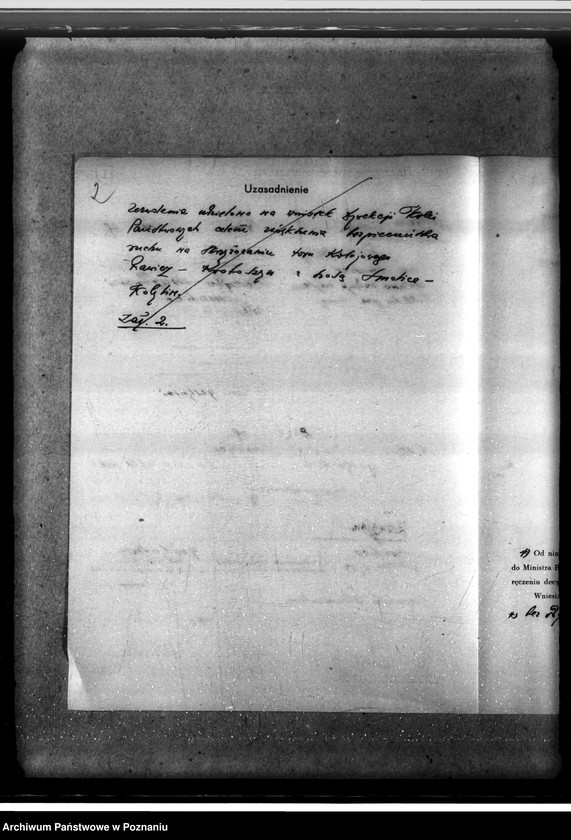 2
Uzasadnienie
Zezwolenia udzielono na wniosek Dyrekcji Kolei
Państwowych celem zwiększenia bezpieczeństwa
ruchu na skrzyżowaniu toru kolejowego
Rawicz – Krotoszyn z szosą Smolice –
Kobylin.
Zał. 2.
Od nin
do Ministra
ręczeniu decy
Wniesi
Archiwum Państwowe w Poznaniu